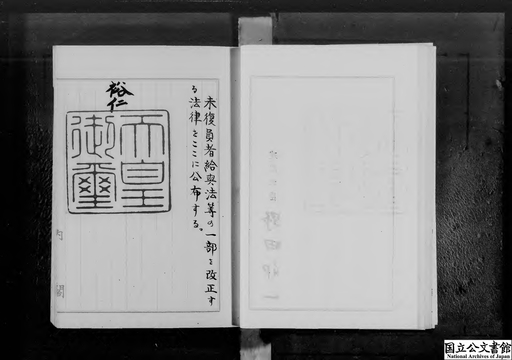 未復員者給与法等の一部を改正す
る法律をここに公布する。
裕仁
天皇
御璽
内閣
国立公文書館
National Archives of Japan